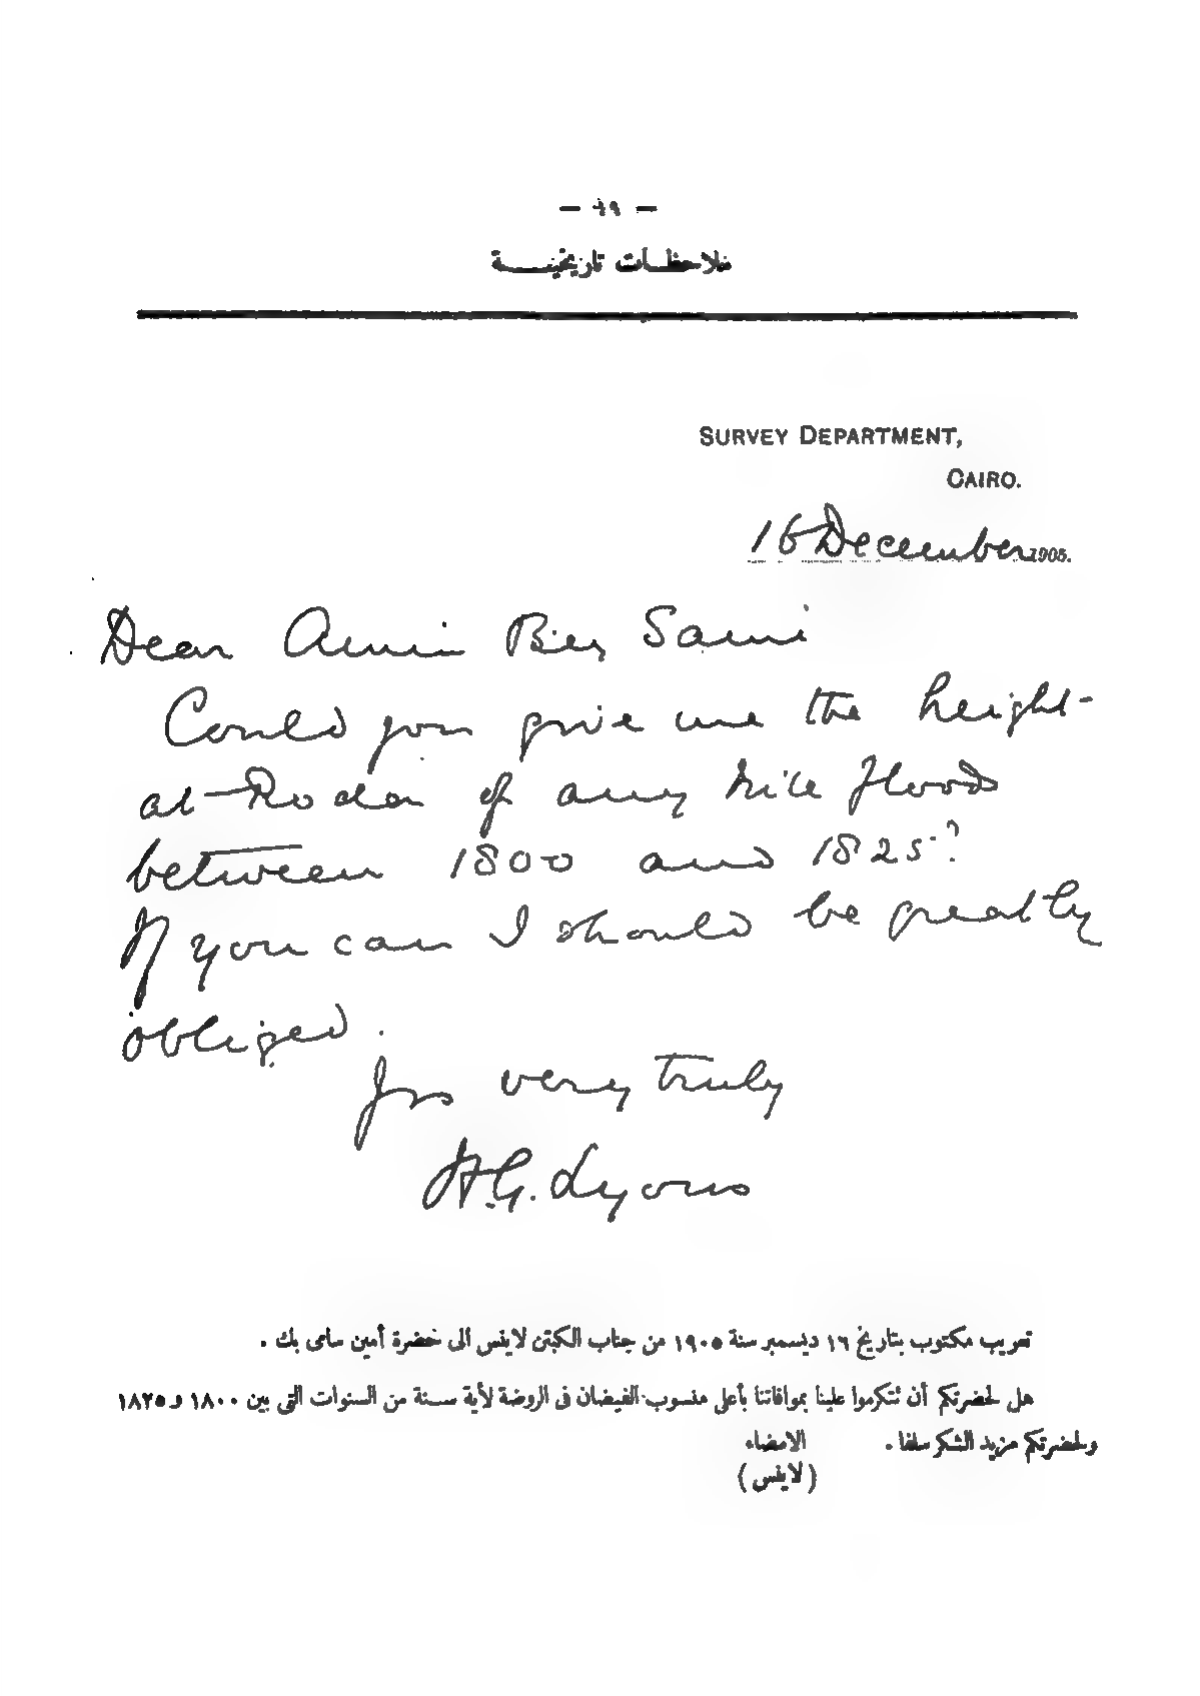 — ٦٩ —
ملاحظات تاريخية
SURVEY DEPARTMENT,
CAIRO.
16 December 1905.
Dear Amin Bey Sami
Could you give me the height
at Roda of any Nile floods
between 1800 and 1825?
If you can I should be greatly
obliged.
Yrs very truly
H.G. Lyons
تعريب مكتوب بتاريخ ١٦ ديسمبر سنة ١٩٠٥ من جناب الكبتن لاينس الى حضرة أمين سامى بك .
هل لحضرتكم أن تتكرموا علينا بموافاتنا بأعلى منسوب الفيضان فى الروضة لأية سنة من السنوات التى بين ١٨٠٠ و ١٨٢٥
ولحضرتكم مزيد الشكر سلفا .
الامضاء
(لاينس)